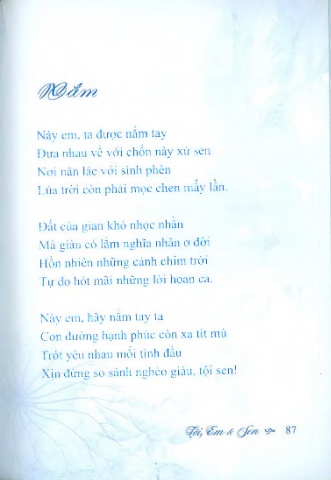 Nắm
Này em, ta được nắm tay
Đưa nhau về với chốn này xứ sen
Nơi nân lác với sình phèn
Lúa trời còn phải mọc chen mấy lần.
Đất của gian khó nhọc nhằn
Mà giàu có lắm nghĩa nhân ở đời
Hồn nhiên những cánh chim trời
Tự do hót mãi những lời hoan ca.
Này em, hãy nắm tay ta
Con đường hạnh phúc còn xa tít mù
Trót yêu nhau mối tình đầu
Xin đừng so sánh nghèo giàu, tội sen!
Tôi, Em & Sen 87